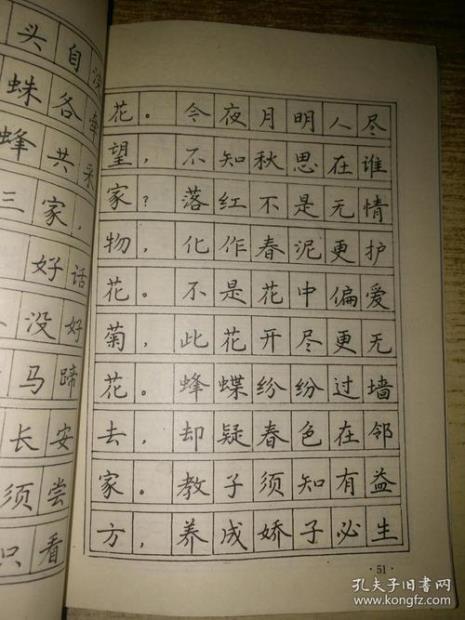 头自浓
蛛各牵
蜂共采
三家，
好话
没好
马蹄
长安
须尝
只看
花。今夜月明人尽
望，不知秋思在谁
家？落红不是无情
物，化作春泥更护
花。不是花中偏爱
菊，此花开尽更无
花。蜂蝶纷纷过墙
去，却疑春色在邻
家。教子须知有益
方，养成娇子必生
·51·
孔夫子旧书网